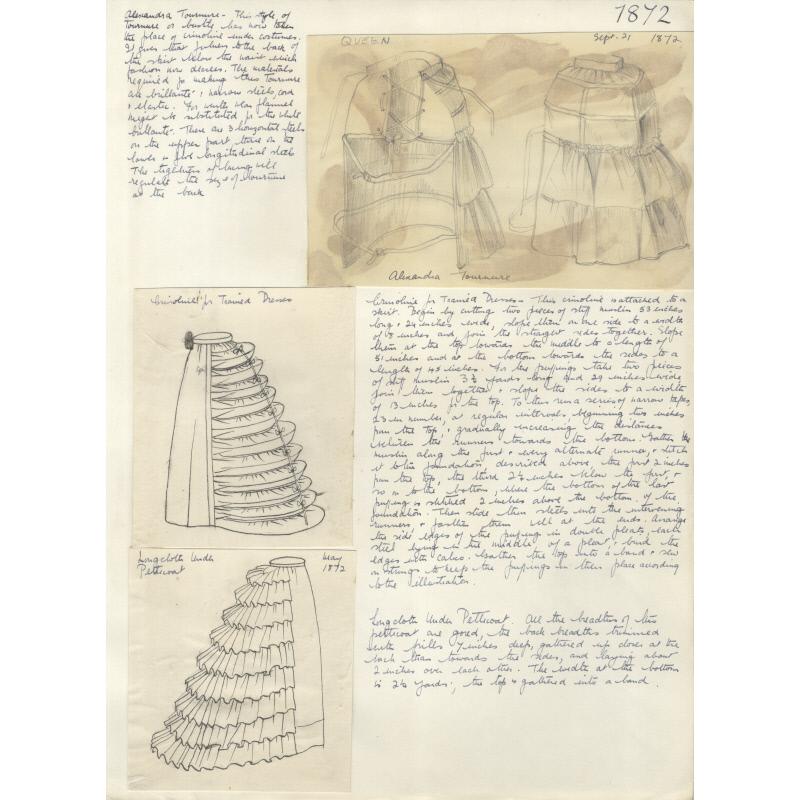 1872
Alexandra Tournure - This style of
Tournure or bustle has now taken
the place of crinoline under costumes.
It gives that fulness to the back of
the skirt below the waist which
fashion now decrees. The materials
required for making this Tournure
are brillante, narrow steels, cord
& elastic. For winter wear flannel
might be substituted for the white
brillante. There are 3 horizontal steels
on the upper part, three on the
lower & five longitudinal steels
The tightness of lacing will
regulate the size of Tournure
at the back
QUEEN
Sept. 21 1872
Alexandra Tournure
Crinoline for Trained Dresses
Crinoline for Trained Dresses - This crinoline is attached to a
skirt. Begin by cutting two pieces of stiff muslin 53 inches
long & 24 inches wide, slope them on one side to a width
of inches and join the straight sides together. Slope
them at the top towards the middle to a length of
51 inches and at the bottom towards the sides to a
length of 45 inches. For the puffings take two pieces
of stiff muslin 3½ yards long and 29 inches wide,
join them together & slope the sides to a width
of 13 inches for the top. To this run a series of narrow tapes,
23 in number, at regular intervals beginning two inches
from the top, & gradually increasing the distances
between the runners towards the bottom. Gather the
muslin along the first & every alternate runner, & stitch
it to the foundation, described above the first 2 inches
from the top, the third 2½ inches below the first, &
so on to the bottom, where the bottom of the last
puffing is stitched 2 inches above the bottom of the
foundation. Then slide thin steels into the intervening
runners & fasten them well at the ends. Arrange
the side edges of the puffing in double pleats, each
steel lying in the middle of a pleat, & bind the
edges with calico. Gather the top into a band & sew
on strings to keep the puffings in their place according
to the illustration.
Longcloth Under
Petticoat
May
1872
Longcloth Under Petticoat. All the breadths of this
petticoat are gored, the back breadths trimmed
with frills 7 inches deep, gathered up closer at the
back than towards the sides, and laying about
2 inches over each other. The width at the bottom
is 2½ yards; the top is gathered into a band.